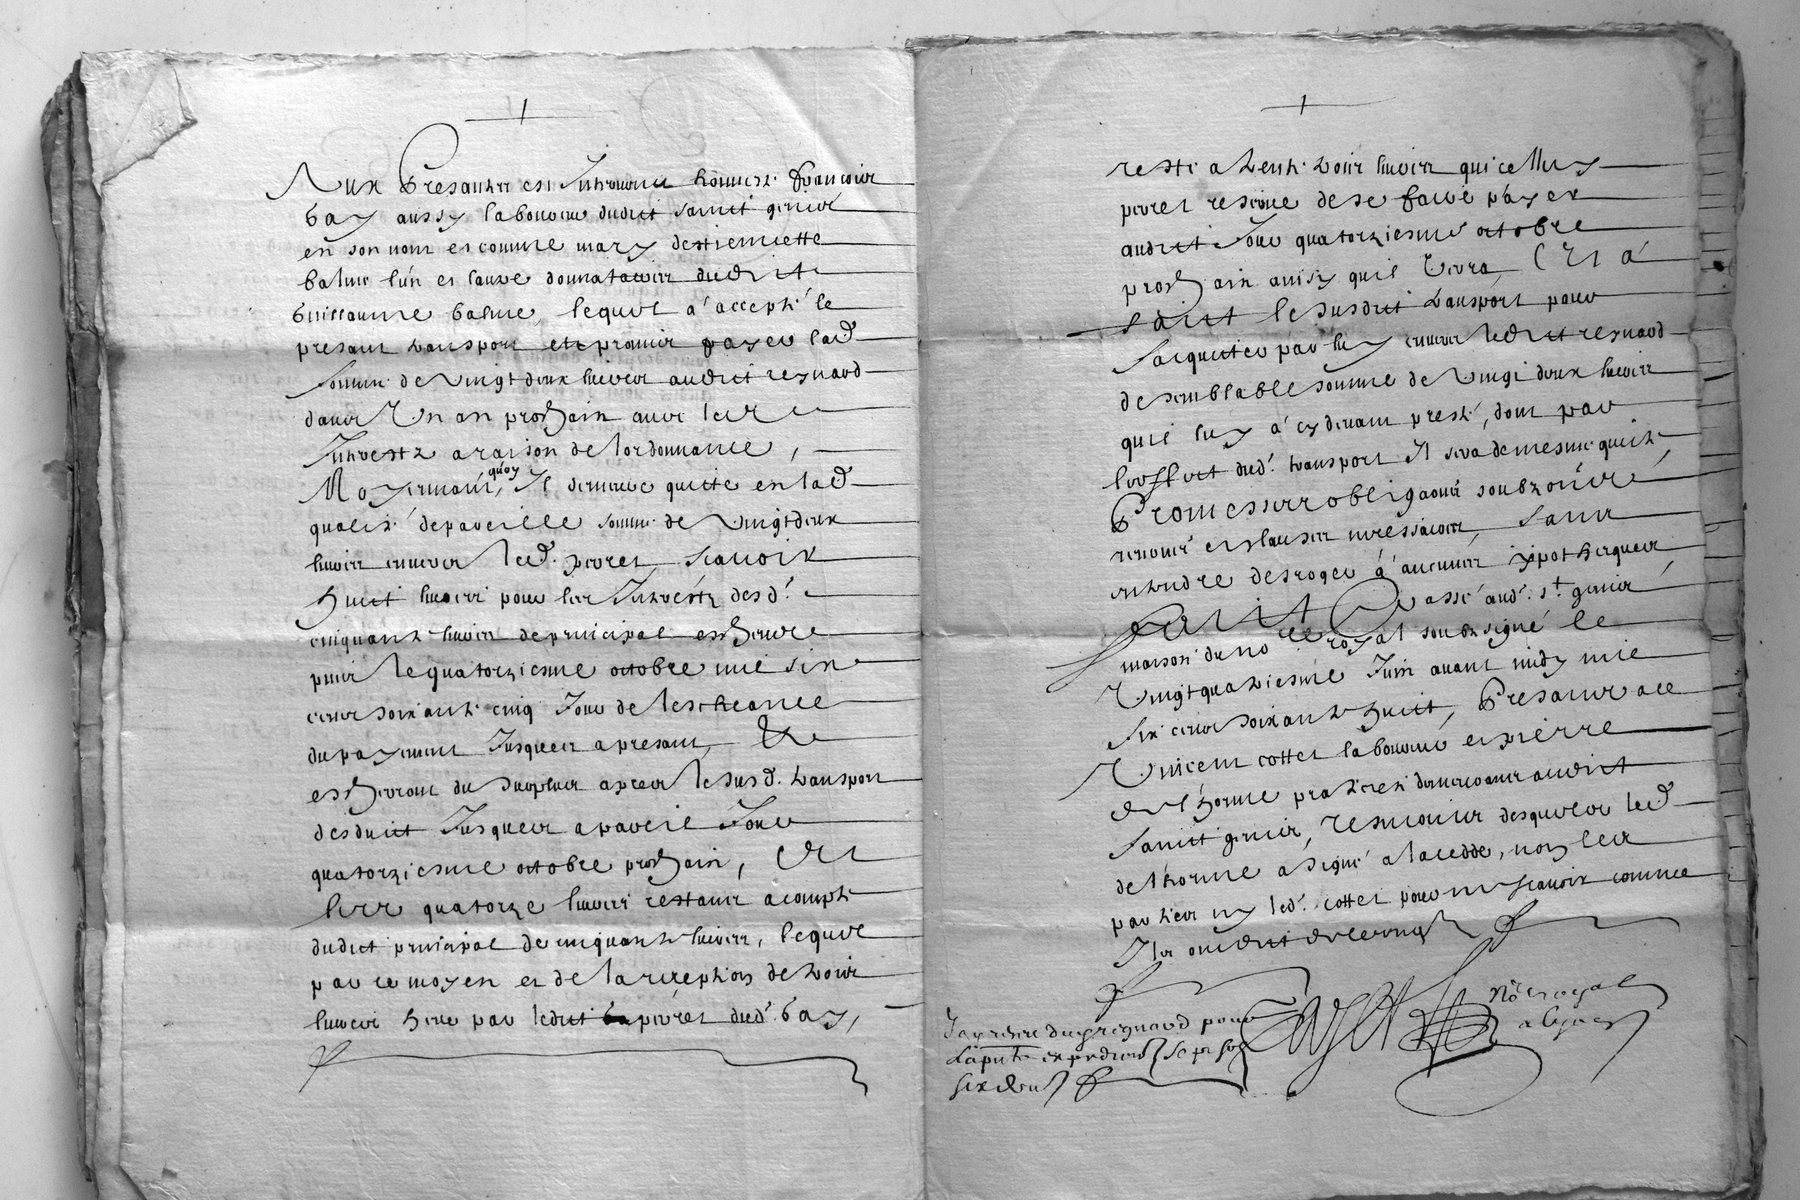 Aux presantes est Intervenu honneste françois
bay aussy laboureur dudict sainct genis
en son nom et comme mary destiennette
balme lun et lautre donnataires dudict
Guillaume balme, lequel a accepté le
presant transport et promis payer lad.
somme de vingt deux livres audict regnard
dans Un an prochain avec les
Interestz a raison de lordonnance,
Moyennant quoy, Il demeure quitte en lad.
qualité de pareille somme de vingt deux
livres envers led. perret, scavoir
huict livres pour les Interestz desd.
cinquante livres de principal escheus
puis le quatorziesme octobre mil six
cens soixante cinq Jour de lescheance
du payement Jusques a presant, &
escherront du surplus apres le susd. transport
desduict Jusques a pareil Jour
quatorziesme octobre prochain, Et
les quatorze livres restans a compte
dudict principal de cinquante livres, lequel
par ce moyen et de la reception de trois
livres heue par ledict perret dud. bay,
reste a trente trois livres que icelluy
perret reserve de se faire payer
audict Jour quatorziesme octobre
prochain ainsy quil verra, Et a
faict le susdict transport pour
sacquiter par luy envers ledict regnard
de semblable somme de vingt deux livres
quil luy a cy devant presté, dont par
leffect dud. transport Il sera de mesme quitte
Promesses obligaons soubz
renonces et clauses necessaires, sans
entendre desroger a aucunes ypotheques
Faict & Passé aud. st. genis
maison du nore royal soubzsigné le
Vingt quatriesme Juin avant midy mil
Six cens soixante huict, Presans a ce
Vincent cottet laboureur et pierre
delhorme praticien demeurans audict
sainct genis, tesmoins desquels led.
delhorme a signé a la cedde, non les
parties ny led. cottet pour ne scavoir comme
Ils ont dict de ce enquis
Nore royal
regnard pour